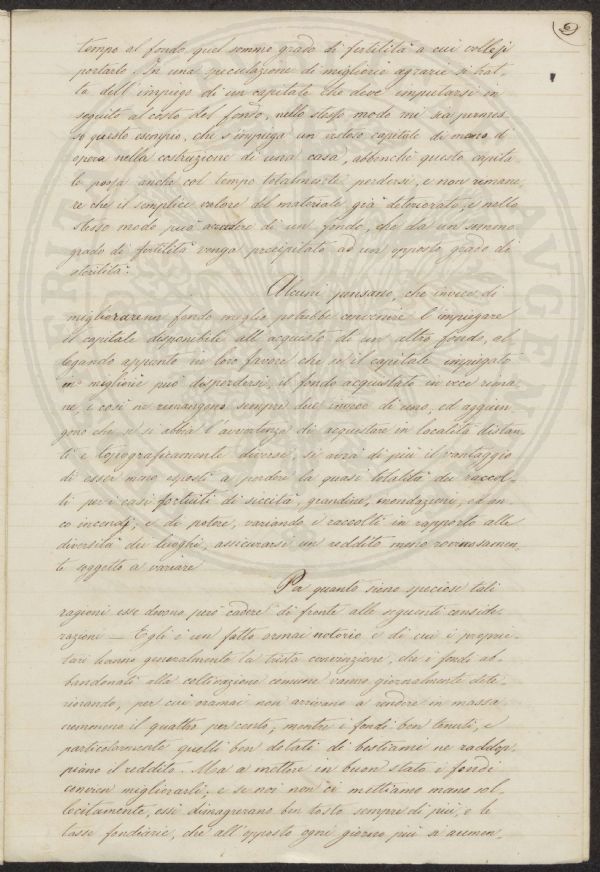 6
tempo al fondo quel sommo grado di fertilità a cui vollesi
portarlo. In una speculazione di migliorie agrarie si trat_
ta dell'impiego di un capitale che deve imputarsi in
seguito al costo del fondo, nello stesso modo mi sia permes_
so questo esempio, che s'impiega un vistoso capitale di mano d
opera nella costruzione di una casa, abbenchè questo capita
le possa anche col tempo totalmente perdersi, e non rimane_
re che il semplice valore del materiale già deteriorato, e nello
stesso modo può accadere di un fondo, che da un sommo
grado di fertilità venga precipitato ad un opposto grado di
sterilità.
Alcuni pensano, che invece di
migliorare un fondo meglio potrebbe convenire l'impiegare
il capitale disponibile all'acquisto di un altro fondo, al_
legando appunto in loro favore che se il capitale impiegato
in migliorie può disperdersi, il fondo acquistato in vece rima
ne, e così ne rimangono sempre due invece di uno, ed aggiun_
gono che se si abbia l'avvertenza di acquistare in località distan_
ti e topograficamente diverse, si avrà di più il vantaggio
di esser meno esposti a perdere la quasi totalità dei raccol_
ti per i casi fortuiti di siccità, grandine, inondazioni, ed an_
co incendj, e di potere, variando i raccolti in rapporto alle
diversità dei luoghi, assicurarsi un reddito meno rovinosamen_
te soggetto a variare
Per quanto sieno speciose tali
ragioni esse devono però cadere di fronte alle seguenti conside_
razioni — Egli è un fatto ormai notorio e di cui i proprie_
tari hanno generalmente la trista convinzione, che i fondi ab_
bandonati alla coltivazione comune vanno giornalmente dete_
riorando, per cui oramai non arrivano a rendere in massa
nemmeno il quattro per cento, mentre i fondi ben tenuti, e
particolarmente quelli ben dotati di bestiami ne raddop_
piano il reddito. Ma a mettere in buon stato i fondi
convien migliorarli, e se noi non ci mettiamo mano sol_
lecitamente, essi dimagrerano ben tosto sempre di più, e le
tasse fondiarie, che all'opposto ogni giorno più si aumen_